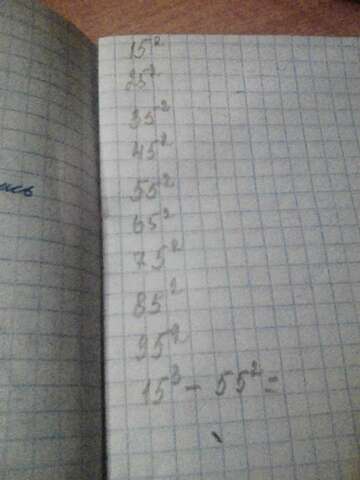 15²
25²
35²
45²
55²
65²
75²
85²
95²
15³ - 55² =